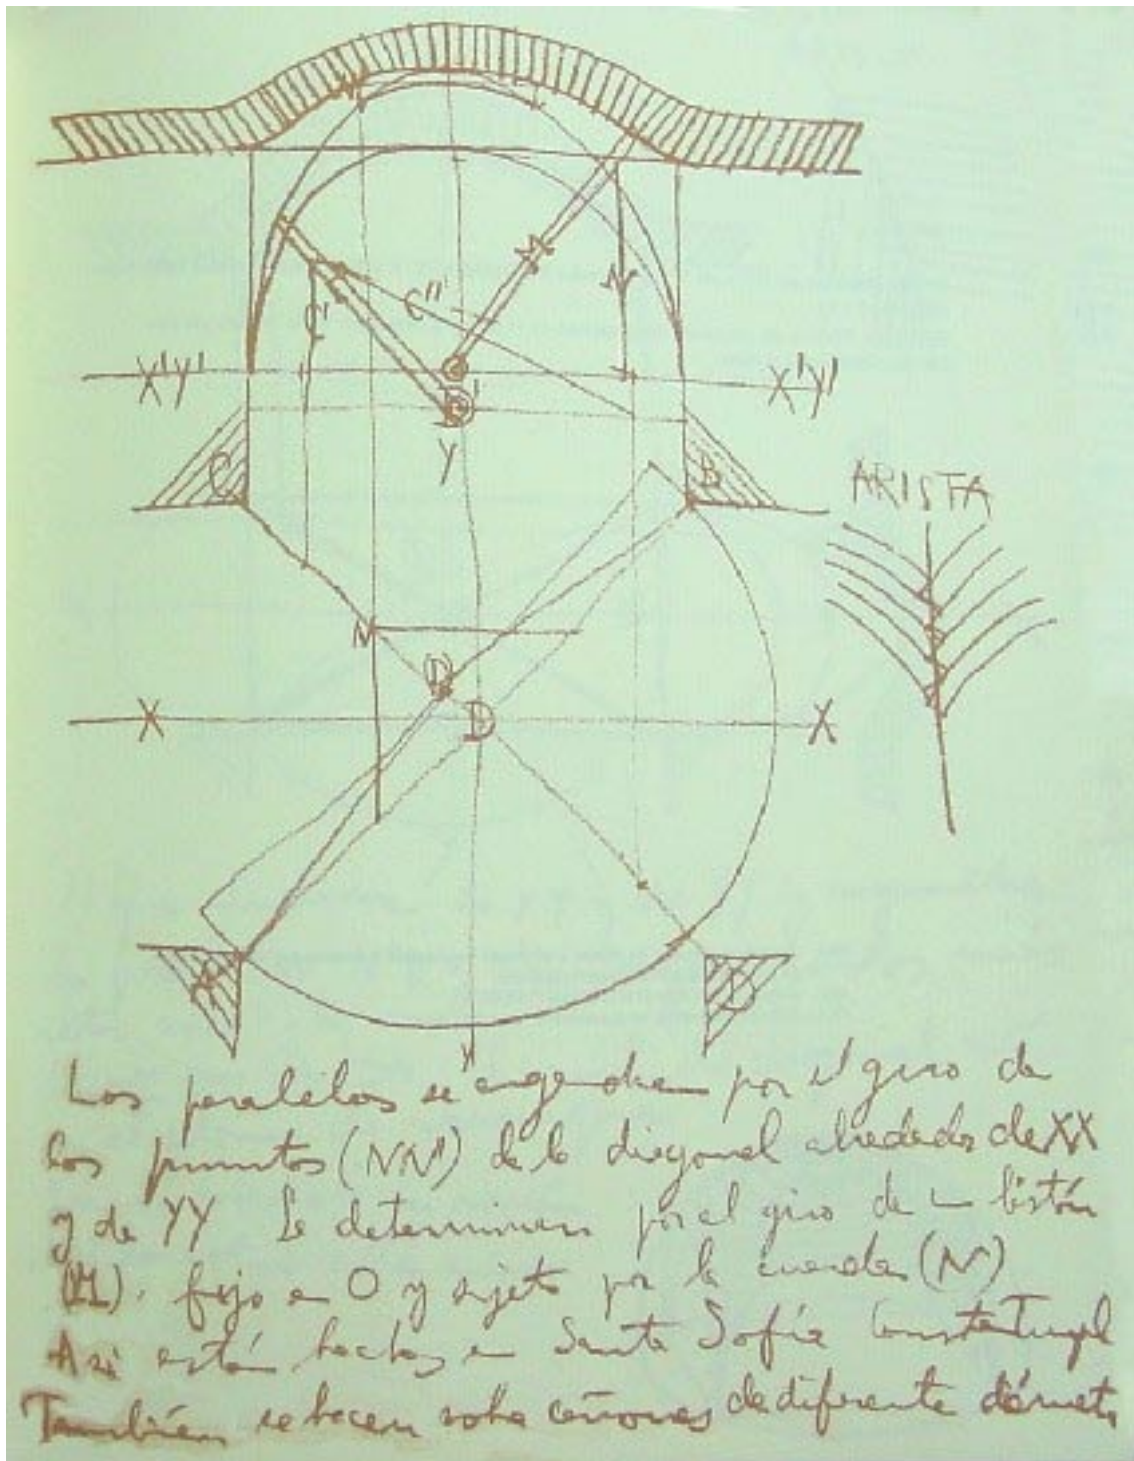 N'
M
C'
C"
N
X'Y'
X'Y'
O'
Y
C
B
ARISTA
N
O
X
D
X
A
D
Y
Los paralelos se engendran por el giro de
los puntos (NN') de la diagonal alrededor de XX
y de YY Se determinan por el giro de un listón
(M). fijo en O y sujeto por la cuerda (N)
Asi están hechas en Santa Sofía Constantinopl
También se hacen sobre cañones de diferente